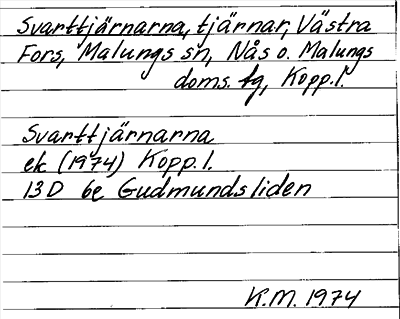 Svarttjärnarna, tjärnar, Västra
Fors, Malungs sn, Nås o. Malungs
doms. tg, Kopp.l.
Svarttjärnarna
ek (1974) Kopp.l.
13D 6e Gudmundsliden
K.M. 1974